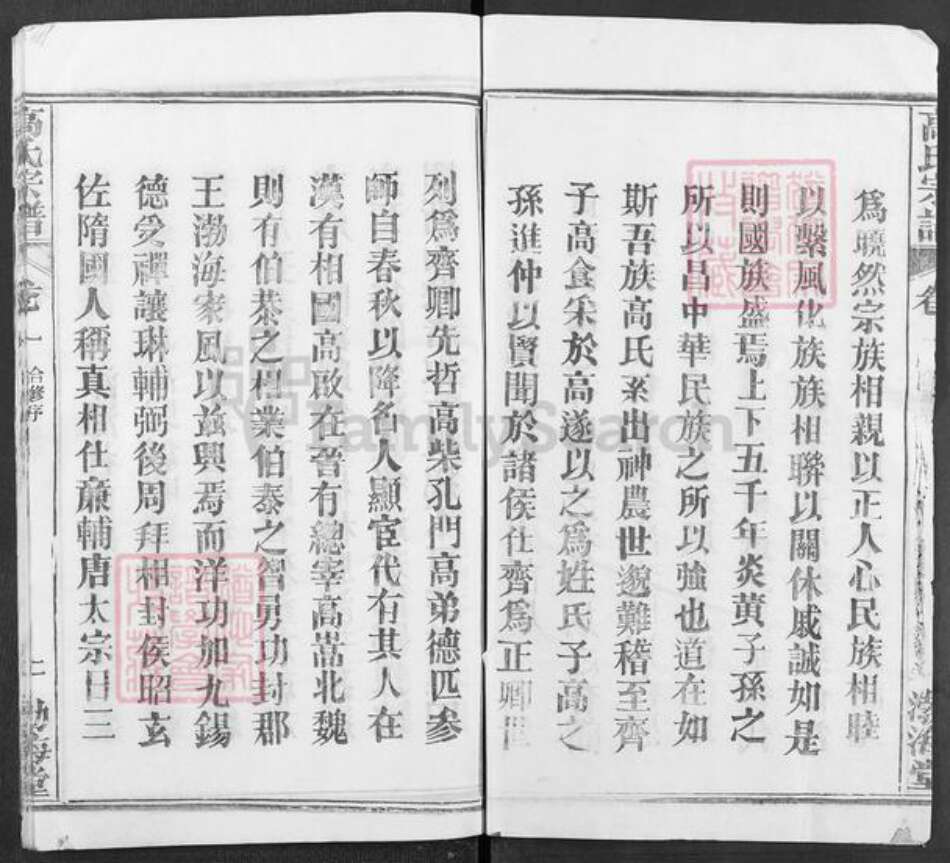 高氏宗譜 卷 渤海堂
爲曉然宗族相親以正人心民族相睦
以繫風化族族相聯以關休戚誠如是
則國族盛焉上下五千年炎黄子孫之
所以昌中華民族之所以強也道在如
斯吾族高氏系出神農世邈難稽至齊
子高食采於高遂以之爲姓氏子高之
孫進仲以賢聞於諸侯仕齊爲正卿世
列爲齊卿先哲高柴孔門高弟德匹參
師自春秋以降名人顯宦代有其人在
漢有相國高敢在晉有總宰高嵩北魏
則有伯恭之相業伯泰之智勇功封郡
王渤海家風以茲興焉而洋功加九錫
德受禪讓琳輔弼後周拜相封侯昭玄
佐隋國人稱真相仕廉輔唐太宗日三
高氏宗譜 卷一 合修序 二 渤海堂
FamilySearch